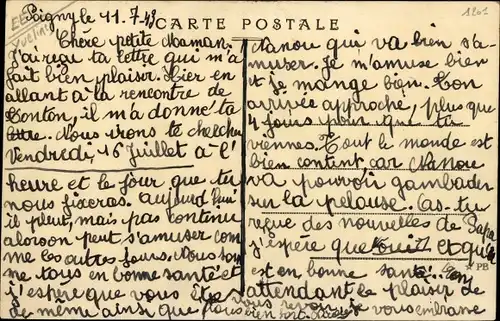 Poigny le 11.7.43
CARTE POSTALE
Chère petite Maman.
J'ai reçu ta lettre qui m'a
fait bien plaisir. Hier en
allant à la rencontre de
Tonton, il m'a donné ta
lettre. Nous irons te chercher
Vendredi, 16 Juillet à l'
heure et le jour que tu
nous fixeras. Aujourd'hui
il pleut, mais pas continu
alors on peut s'amuser com
me les autres jours. Nous som
mes tous en bonne santé et
j'espère que vous êtes
de même ainsi que
Nanou qui va bien s'a-
muser. Je m'amuse bien
et je mange bien. Ton
arrivée approche, plus que
4 jours pour que tu
viennes. Tout le monde est
bien content, car Nanou
va pouvoir gambader
sur la pelouse. As-tu
reçue des nouvelles de Papa
j'espère que oui et qu'il
est en bonne santé. En
attendant le plaisir de
vous revoir
bien tôt je vous embrasse
PB